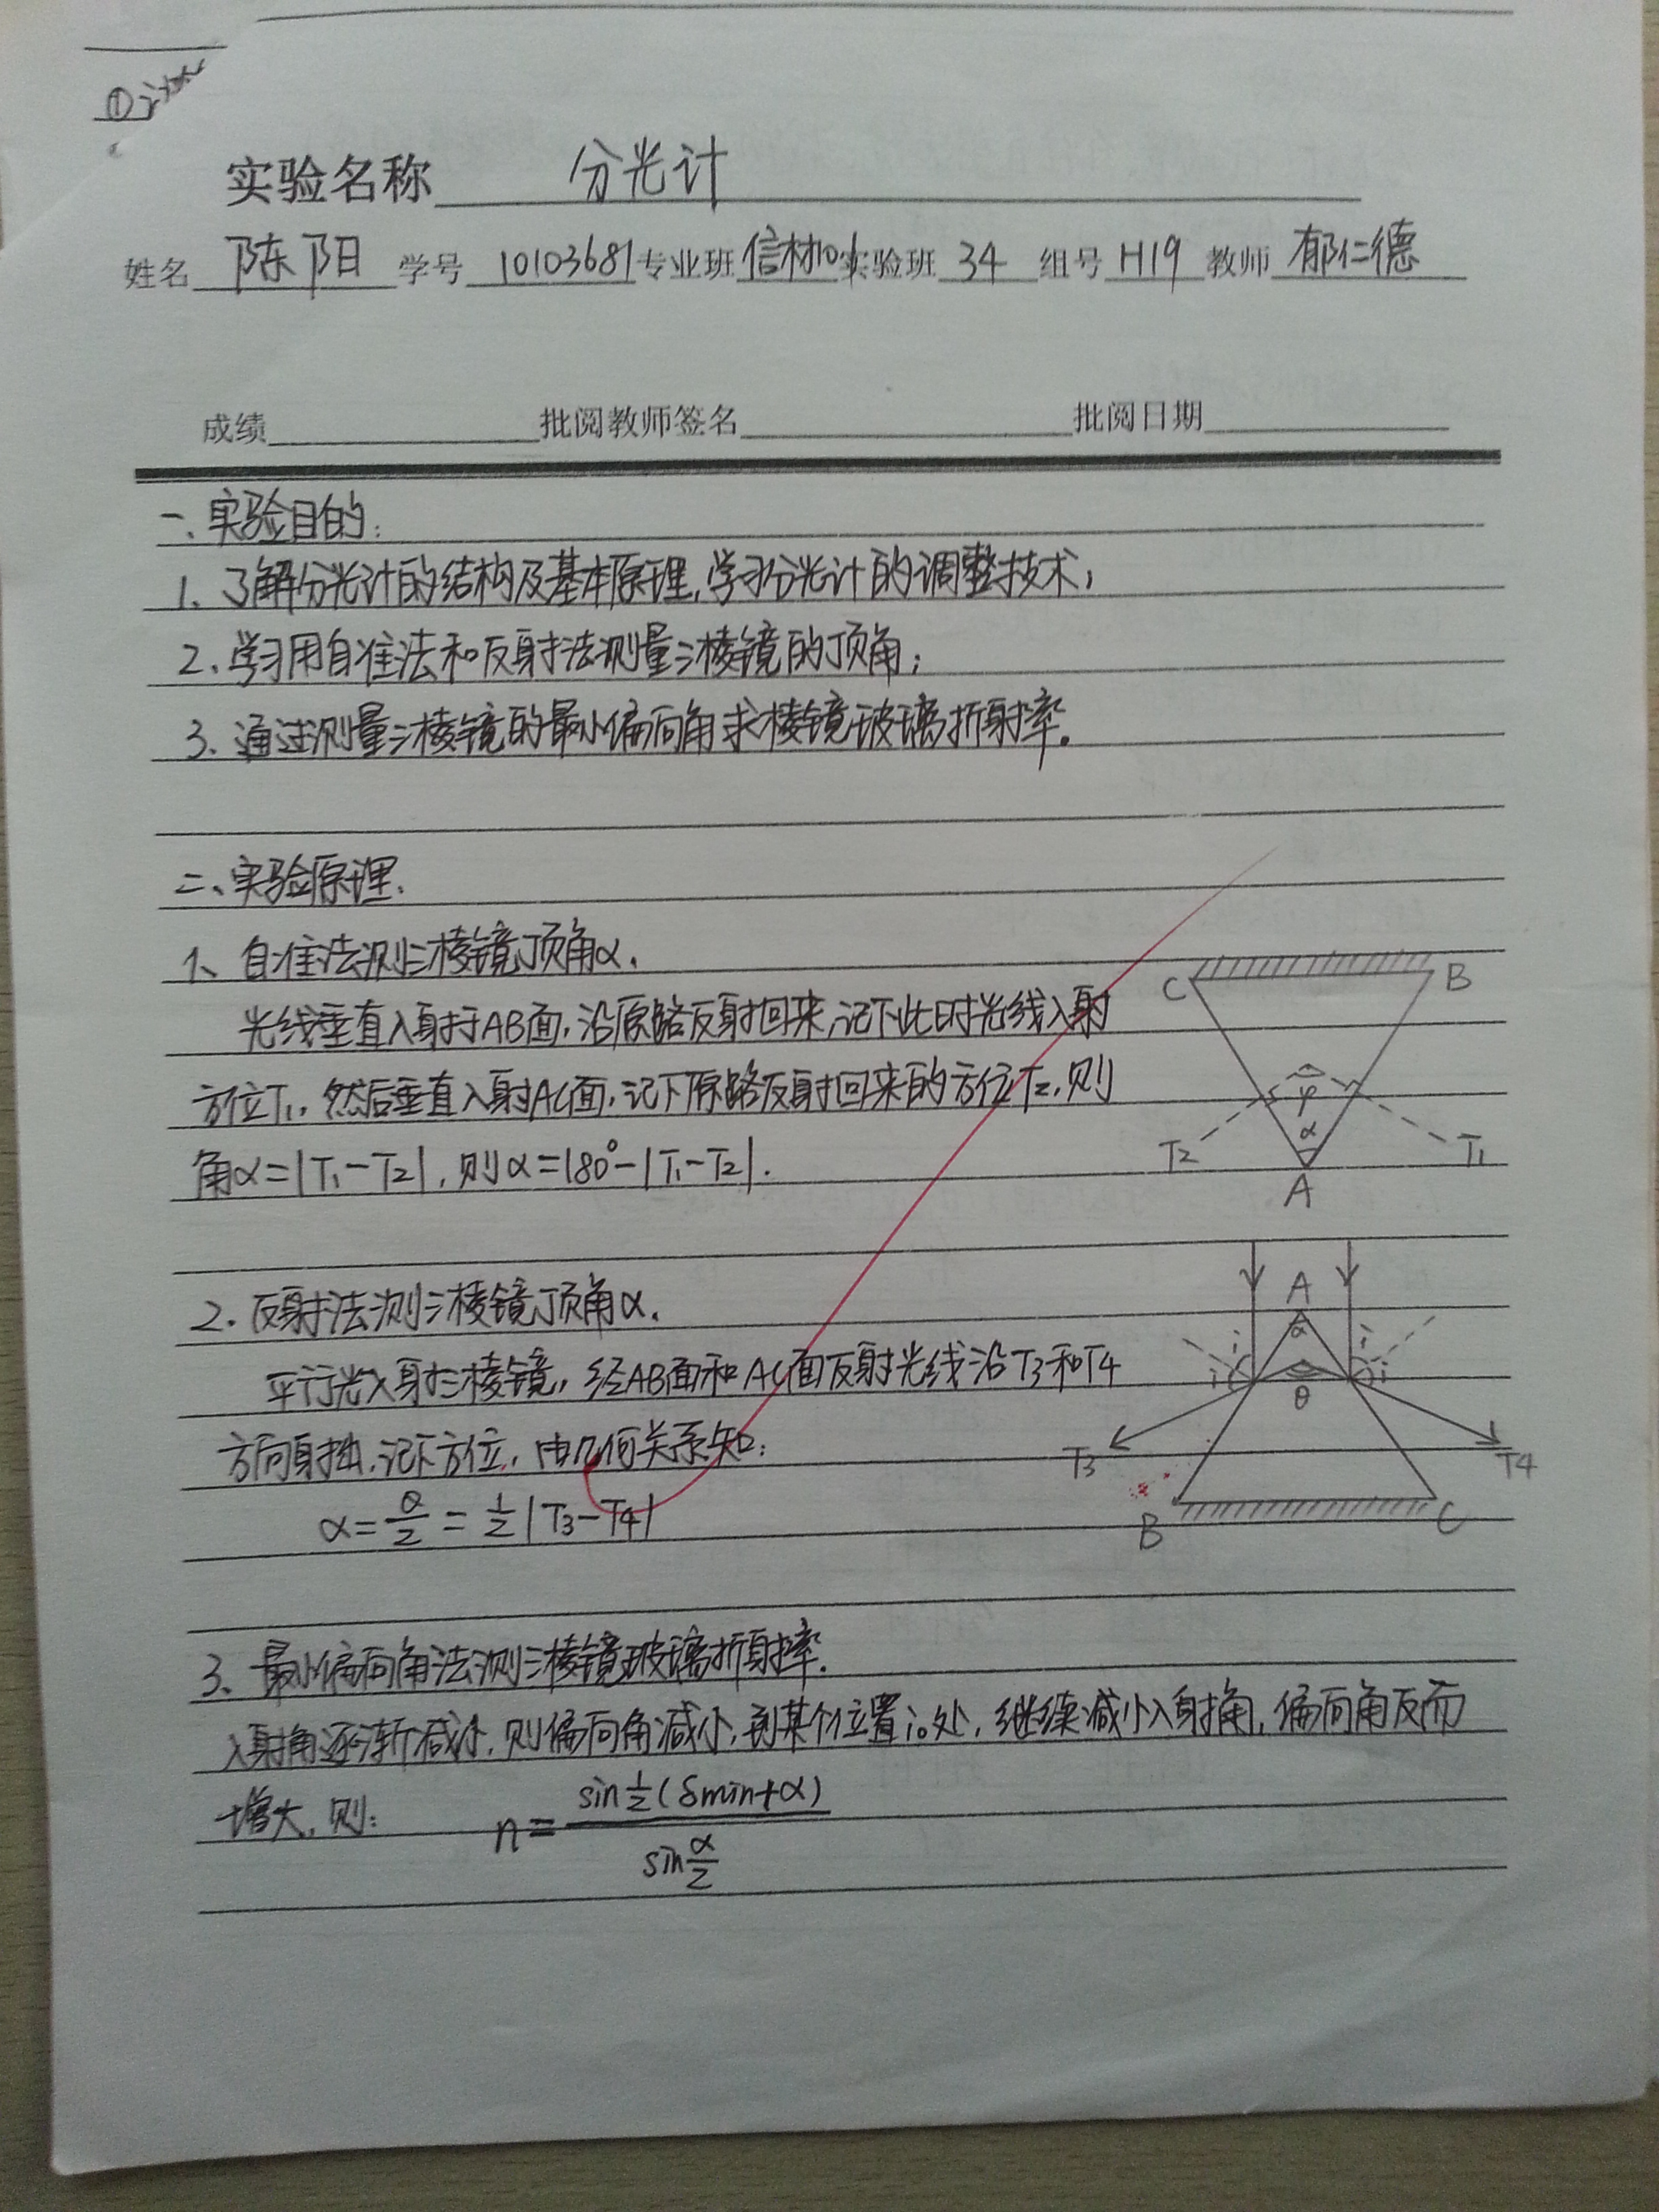 ①
实验名称 分光计
姓名 陈阳 学号 10103681 专业班 信材101 实验班 34 组号 H19 教师 郁仁德
成绩 批阅教师签名 批阅日期
一、实验目的:
1、了解分光计的结构及基本原理,学习分光计的调整技术;
2、学习用自准法和反射法测量三棱镜的顶角;
3、通过测量三棱镜的最小偏向角求棱镜玻璃折射率。
二、实验原理.
1、自准法测三棱镜顶角α.
光线垂直入射于AB面,沿原路反射回来,记下此时光线入射
方位T₁,然后垂直入射AC面,记下原路反射回来的方位T₂,则
角α=|T₁-T₂|,则α=180°-|T₁-T₂|.
C B
φ
α
T₂ T₁
A
2.反射法测三棱镜顶角α.
平行光入射三棱镜,经AB面和AC面反射光线沿T3和T4
方向射出,记下方位,由几何关系知:
α=θ/2=1/2|T3-T4|
A
α
i i
i i
θ
T3 T4
B C
3、最小偏向角法测三棱镜玻璃折射率.
入射角逐渐减小,则偏向角减小,到某个位置i₀处,继续减小入射角,偏向角反而
增大,则: n=sin1/2(δmin+α)/sinα/2